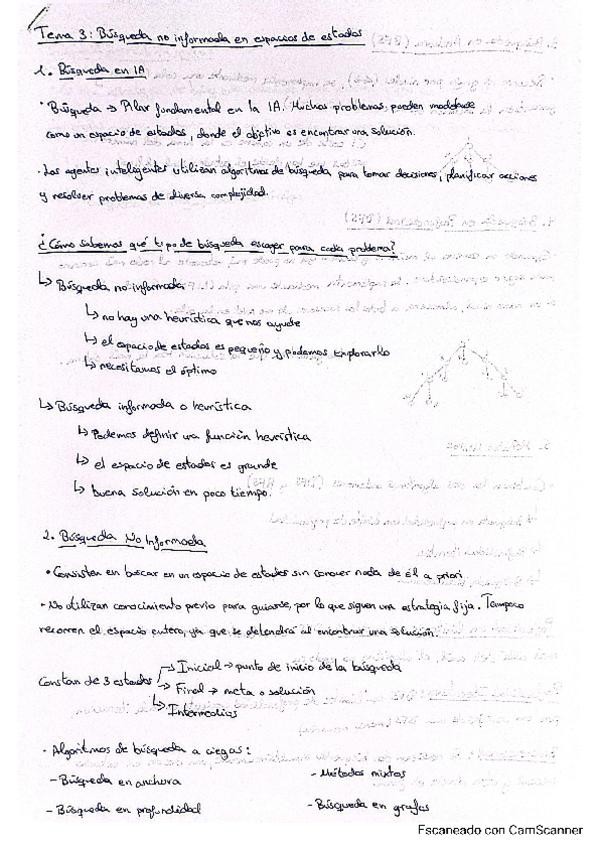 Tema 3: Búsqueda no informada en espacios de estados
1. Búsqueda en IA
· Búsqueda → Pilar fundamental en la IA. Muchos problemas pueden modelarse
como un espacio de estados, donde el objetivo es encontrar una solución.
· Los agentes inteligentes utilizan algoritmos de búsqueda para tomar decisiones, planificar acciones
y resolver problemas de diversa complejidad.
¿Cómo sabemos qué tipo de búsqueda escoger para cada problema?
↳ Búsqueda no informada
↳ no hay una heurística que nos ayude
↳ el espacio de estados es pequeño y podemos explorarlo
↳ necesitamos el óptimo
↳ Búsqueda informada o heurística
↳ Podemos definir una función heurística
↳ el espacio de estados es grande
↳ buena solución en poco tiempo.
2. Búsqueda No Informada
· Consisten en buscar en un espacio de estados sin conocer nada de él a priori
· No utilizan conocimiento previo para guiarse, por lo que siguen una estrategia fija. Tampoco
recorren el espacio entero, ya que se detendrá al encontrar una solución.
Constan de 3 estados
→ Inicial → punto de inicio de la búsqueda
→ Final → meta o solución
↳ Intermedios
· Algoritmos de búsqueda a ciegas:
- Búsqueda en anchura
- Métodos mixtos
- Búsqueda en profundidad
- Búsqueda en grafos
Escaneado con CamScanner